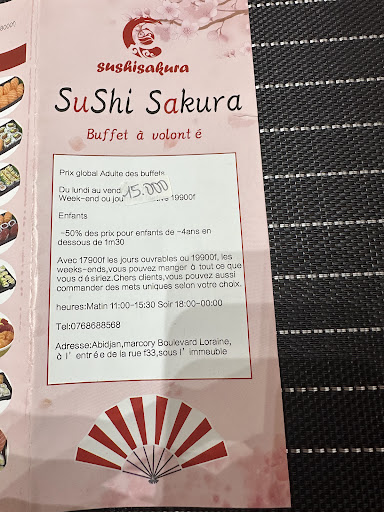 sushisakura
SuShi Sakura
Buffet à volonté
Prix global Adulte des buffets
Du lundi au vend
15.000
Week-end ou jou 19900f
Enfants
-50% des prix pour enfants de -4ans en
dessous de 1m30
Avec 17900f les jours ouvrables ou 19900f, les
weeks-ends,vous pouvez manger à tout ce que
vous désiriez.Chers clients,vous pouvez aussi
commander des mets uniques selon votre choix.
heures:Matin 11:00-15:30 Soir 18:00-00:00
Tel:0768688568
Adresse:Abidjan,marcory Boulevard Loraine,
à l'entrée de la rue f33,sous l'immeuble